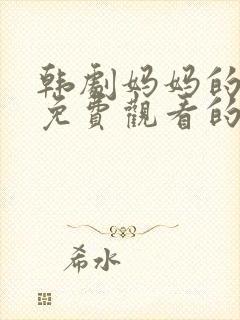 韩剧妈妈的
免費觀看的
希水